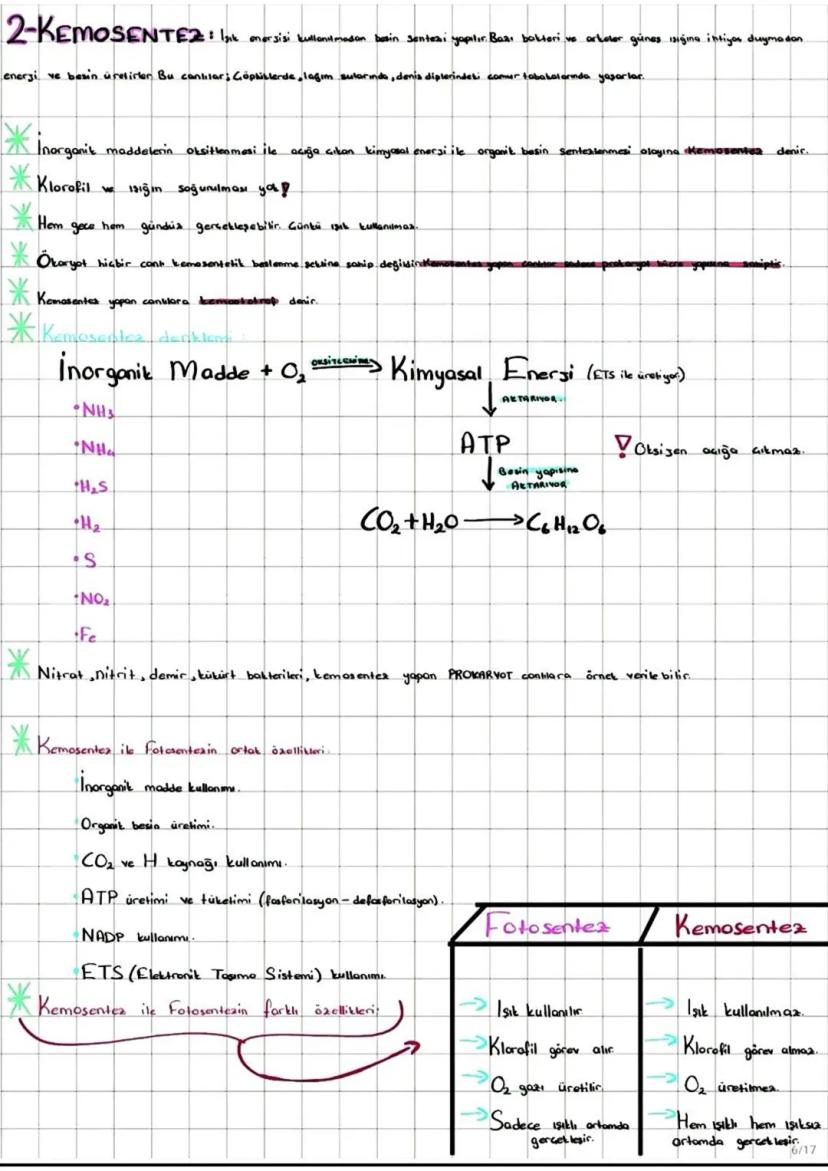 2-KEMOSENTEZ: Işık enerjisi kullanılmadan besin sentezi yapılır. Bazı bakteri ve arkeler güneş ışığına ihtiyaç duymadan
enerji ve besin üretirler. Bu canlılar; Çöplüklerde, lağım sularında, deniz diplerindeki çamur tabakalarında yaşarlar.
İnorganik maddelerin oksitlenmesi ile açığa çıkan kimyasal enerji ile organik besin sentezlenmesi olayına Kemosentez denir.
Klorofil ve ışığın soğurulması yok!
Hem gece hem gündüz gerçekleşebilir. Çünkü ışık kullanılmaz.
Ökaryot hiçbir canlı kemosentetik beslenme şekline sahip değildir. Kemosentez yapan canlılar sadece prokaryot hücre yapısına sahiptir.
Kemosentez yapan canlılara kemoototrof denir.
Kemosentez denklemi:
İnorganik Madde + O₂ OKSİTLENİM Kimyasal Enerji (ETS ile üretiyor)
AKTARIYOR.
•NH₃
ATP ! Oksijen açığa çıkmaz.
•NH₄
Besin yapısına
AKTARIYOR
•H₂S
•H₂ CO₂+H₂O → C₆H₁₂O₆
•S
•NO₂
•Fe
Nitrat, nitrit, demir, kükürt bakterileri, kemosentez yapan PROKARYOT canlılara örnek verilebilir.
Kemosentez ile Fotosentezin ortak özellikleri:
•İnorganik madde kullanımı.
•Organik besin üretimi.
•CO₂ ve H kaynağı kullanımı.
•ATP üretimi ve tüketimi (fosforilasyon - defosforilasyon).
•NADP kullanımı.
•ETS (Elektronik Taşıma Sistemi) kullanımı.
Kemosentez ile Fotosentezin farklı özellikleri;
Fotosentez
→ Işık kullanılır
→ Klorofil görev alır.
→ O₂ gazı üretilir.
→ Sadece ışıklı ortamda
gerçekleşir.
Kemosentez
→ Işık kullanılmaz.
→ Klorofil görev almaz.
→ O₂ üretilmez.
→ Hem ışıklı hem ışıksız
ortamda gerçekleşir.
6/17